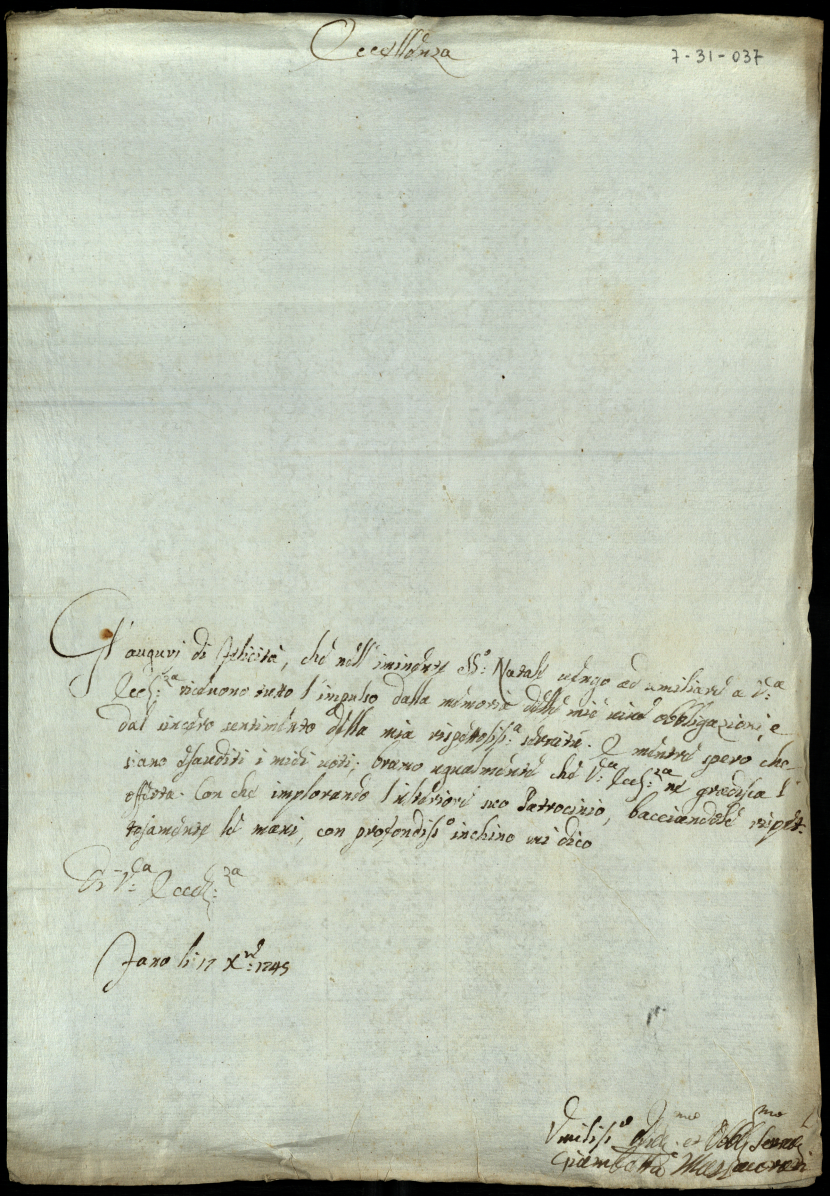 Eccellenza
7-31-037
Gl'auguri di felicità, che nell'iminente SS.º Natale vengo ad umiliare a V.ª
Eccll.za ricevono tutto l'impulso dalla memoria delle mie obbligazioni, e
dal sincero sentimento della mia rispettosiss.ª servitù. E mentre spero che
siano esauditi i miei voti; bramo ugualmente che V.ª Eccll.za ne gradisca l'
offerta. Con che implorando l'ulteriore suo Patrocinio, bacciandole rispet-
tosamente le mani, con profondiss.º inchino mi dico
Di V.ª Eccell.za
Fano li: 17 Xbre: 1745
Umiliss.º et Obbl.mo
Giambatta